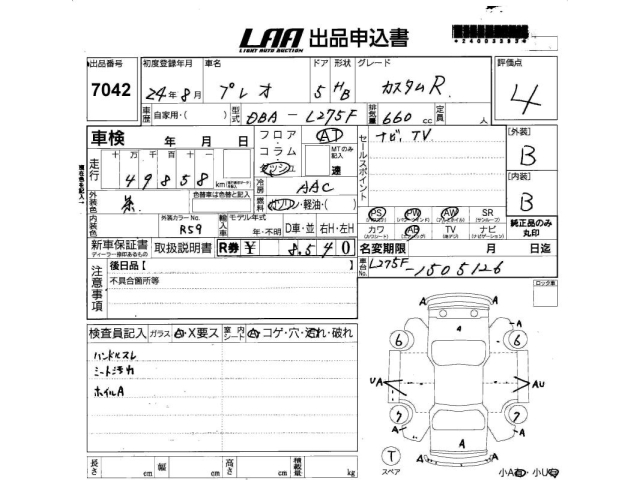 LAA 出品申込書
LIGHT AUTO AUCTION
*240033854*
出品番号 初度登録年月 車名 ドア 形状 グレード 評価点
7042 24年8月 プレオ 5 HB カスタムR 4
車歴 自家用・( ) 型式 DBA-L275F 排気量 660 cc 定員 人
車検 年 月 日 フロア AT セールスポイント ナビ、TV [外装]
コラム MTのみ記入 B
走行 十万 千百十 ダッシュ 速
49858 km [内装]
外装色 茶 色替車は色替と記入 冷房 AAC B
内装色 燃料 ガソリン・軽油・( )
外装カラーNo. 輸入車 モデル年式 PS PW AW SR 純正品のみ丸印
R59 年・不明 D車・並 右H・左H カワ AB TV ナビ
新車保証書 取扱説明書 R券 ¥ 8,540 名変期限 月 日迄
ディーラー捺印あるもの
注意事項 後日品【 】 車台No. L275F-1505126
不具合箇所等 ロック車
検査員記入 ガラス A・X要ス 室内シート A コゲ・穴・汚れ・破れ
ハンドルスレ
シート汚れ
ホイルA
A A
A
6 6
UA A AU
7 7
A A A
A A
T
スペア 小A有・小U有
長さ cm 幅 cm 高さ cm 積載量 kg
現在色を記入。